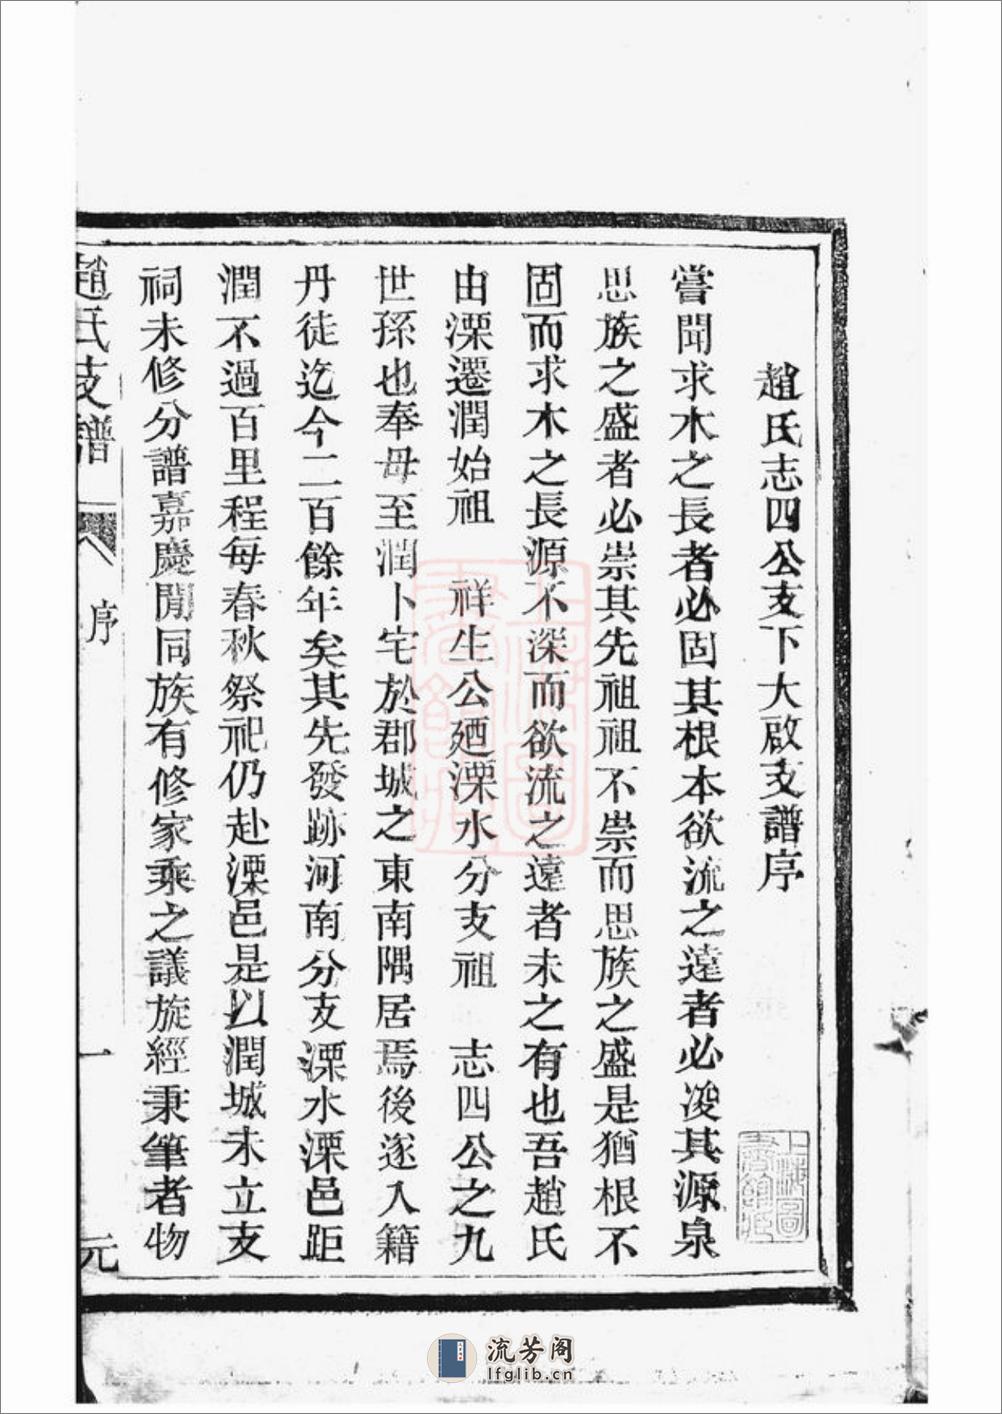 趙氏志四公支下大啟支譜序
嘗聞求木之長者必固其根本欲流之遠者必浚其源泉
思族之盛者必崇其先祖祖不崇而思族之盛是猶根不
固而求木之長源不深而欲流之遠者未之有也吾趙氏
由溧遷潤始祖 祥生公廼溧水分支祖 志四公之九
世孫也奉母至潤卜宅於郡城之東南隅居焉後遂入籍
丹徒迄今二百餘年矣其先發跡河南分支溧水溧邑距
潤不過百里程每春秋祭祀仍赴溧邑是以潤城未立支
祠未修分譜嘉慶閒同族有修家乘之議旋經秉筆者物
趙氏支譜 序 一 元
上海圖書館藏
上海圖書館藏
流芳阁
lfglib.cn